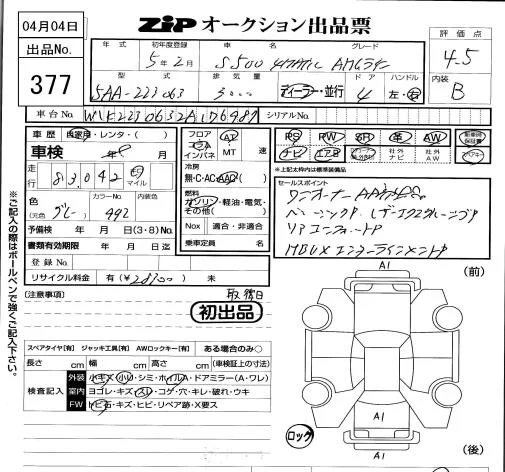 04月04日
ZIP オークション出品票
出品No.
377
年式 初年度登録 車名 グレード
5年2月 S500 4MATIC AMGライン
型式 排気量 ドア ハンドル
5AA-223063 3000 ディーラー・並行 4 左・右
評価点
4.5
内装
B
車台No. シリアルNo.
車歴 自家用・レンタ・( )
車検 年 月
走行 83,042 km マイル
色 (元色 グレー) カラーNo. 992
予備検 年 月 日(3・8)No.
書類有効期限 年 月 日迄
登録No.
リサイクル料金 有(¥ ) 未
フロア コラム インパネ AT MT 速
冷房
無・C・AC・AAC( )
燃料
ガソリン・軽油・電気・その他( )
Nox 適合・非適合
乗車定員 名
PS PW SR 革 AW
ナビ エアB 社外ナビ 社外AW
※上記太枠内は標準装備品
セールスポイント
ワンオーナー
ベーシックP レザーエクスクルーシブP
リアコンフォートP
MBUXエンターテインメントP
※ご記入の際はボールペンで強くご記入下さい。
(注意事項)
初出品
スペアタイヤ[有] ジャッキ工具[有] AWロックキー[有] ある場合のみ○
長さ cm 幅 cm 高さ cm (車検証上の寸法)
検査記入
外装 小キズ・小凹・シミ・ホイルA・ドアミラー(A・ワレ)
室内 ヨゴレ・キズ・スレ・コゲ・穴・キレ・破れ・ウキ
FW トビ石・キズ・ヒビ・リペア跡・X要ス
A1
(前)
A1
A1
ロック
(後)